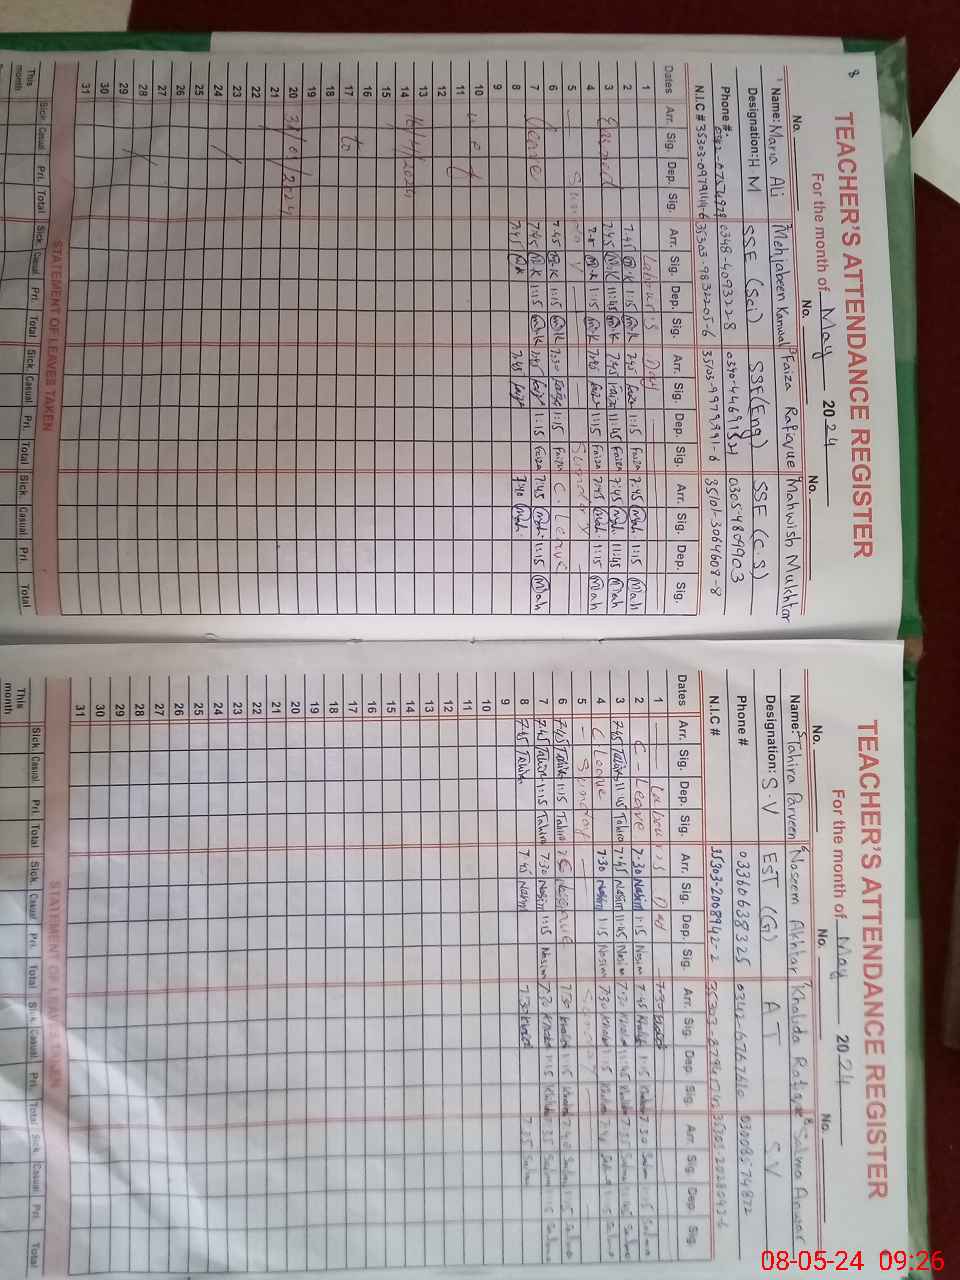 8
TEACHER'S ATTENDANCE REGISTER
For the month of May 2024
No. No. No.
Name: Maria Ali Mehjabeen Kanwal Faiza Rafique Mahwish Mukhtar
Designation: H.M SSE (Sci) SSE (Eng) SSE (C.S)
Phone #: 0348-4093228 0305-4809903
N.I.C #
Dates Arr. Sig. Dep. Sig. Arr. Sig. Dep. Sig. Arr. Sig. Dep. Sig. Arr. Sig. Dep. Sig.
1 Labour's Day
2 7:45 M.K 1:15 M.K 7:45 Faiza 1:15 Faiza 7:45 Mah 1:15 Mah
3 Earned 7:45 M.K 11:45 M.K 7:45 Faiza 11:45 Faiza 7:45 Mah 11:45 Mah
4 M.K 1:15 M.K 7:45 Faiza 1:15 Faiza 7:45 Mah 1:15 Mah
5 Sunday Sunday
6 7:45 M.K 1:15 M.K 7:30 Faiza 1:15 Faiza C. Leave
7 Leave 7:45 M.K 1:15 M.K 7:45 Faiza 1:15 Faiza 7:45 Mah 1:15 Mah
8 7:45 M.K 7:45 Faiza 7:40 Mah
9
10 w.e.f
11
12
13
14 16/4/2024
15
16
17 to
18
19
20
21
22
23
24
25
26
27
28
29
30
31
STATEMENT OF LEAVES TAKEN
Sick. Casual Pri. Total Sick. Casual Pri. Total Sick. Casual Pri. Total Sick. Casual Pri. Total
This month
TEACHER'S ATTENDANCE REGISTER
For the month of May 2024
No. No. No.
Name: Tahira Parveen Naseem Akhtar Khalida Rafique Salma Anwar
Designation: S.V EST (G) A T S V
Phone # 03360638325
N.I.C # 35303-2008942-2
Dates Arr. Sig. Dep. Sig. Arr. Sig. Dep. Sig. Arr. Sig. Dep. Sig. Arr. Sig. Dep. Sig.
1 Labour's Day
2 C-Leave 7:30 Nasim 1:15 Nasim 7:45 Khalida 1:15 Khalida 7:30 Salma 1:15 Salma
3 7:45 Tahira 11:45 Tahira 7:45 Nasim 11:45 Nasim 7:30 Khalida 11:45 Khalida 7:35 Salma 11:45 Salma
4 C Leave 7:30 Nasim 1:15 Nasim 7:30 Khalida 1:15 Khalida 1:15 Salma
5 Sunday Sunday
6 7:45 Tahira 1:15 Tahira 7:30 Khalida 1:15 Khalida 7:40 Salma 1:15 Salma
7 7:45 Tahira 1:15 Tahira 7:30 Nasim 1:15 Nasim 7:30 Khalida 1:15 Khalida 7:35 Salma 1:15 Salma
8 7:45 Tahira 7:45 Nasim 7:30 Khalida 7:35 Salma
9
10
11
12
13
14
15
16
17
18
19
20
21
22
23
24
25
26
27
28
29
30
31
STATEMENT OF LEAVES TAKEN
Sick. Casual Pri. Total Sick. Casual Pri. Total Sick. Casual Pri. Total Sick. Casual Pri. Total
This month
08-05-24 09:26